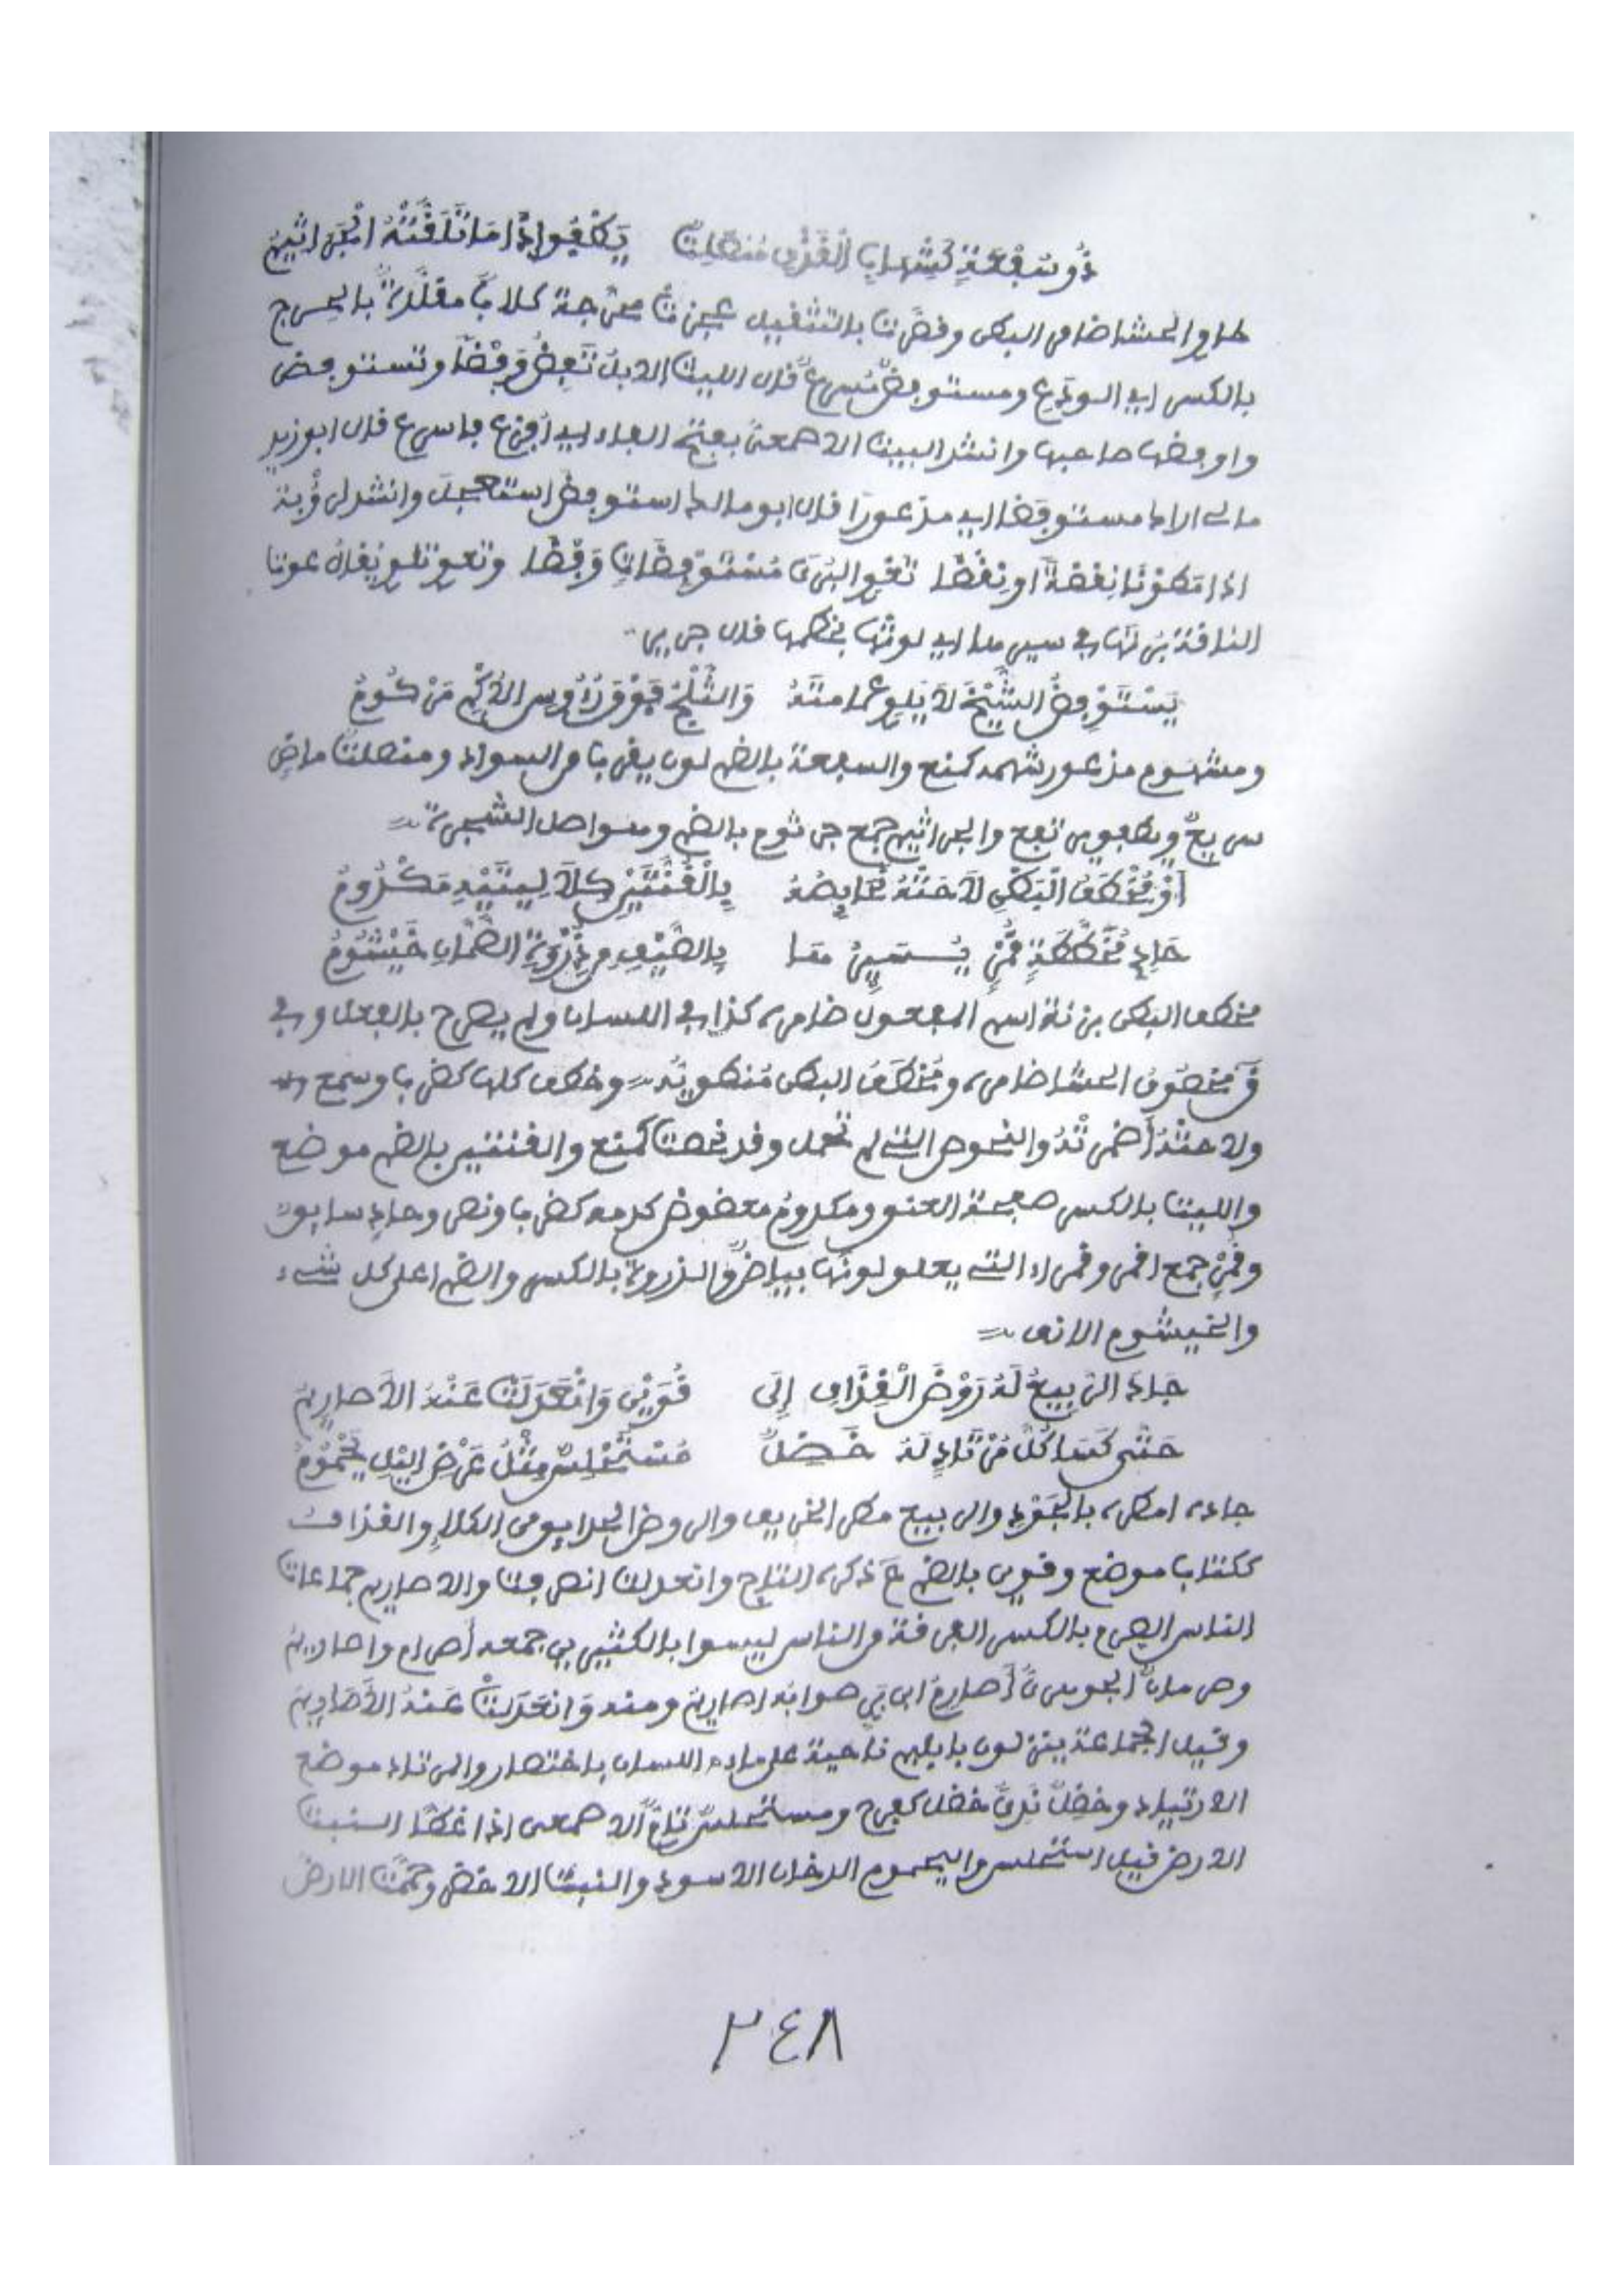 ذُو سُفْعَةٍ كَشِهَابِ الْقَذْفِ مُنْصَلِتٌ يَطْفُو إِذَا مَا تَلَقَّتْهُ الْجَرَاثِيمُ
طاو الحشا ضامر البطن وقصرت بالتثقيل عجزت معرجة كلاب مقلدة بالحرج
بالكسر اي الودع ومستوفض مسرع قال الليث الابل تفض وفضا وتستوفض
واوفضها صاحبها وانشد البيت الاصمعي بفتح الفاء اي افزع فاسرع قال ابو زيد
مالي اراك مستوفضا اي مذعورا قال ابو مالك استوفض استعجل وانشد لرؤبة
اذا مطونا نقضة او نقضا تعوي البرى مستوفضات وفضا وتعوي تلوي يقال عوت
الناقة برتها في سيرها اي لوتها بخطمها قال جرير
يَسْتَوْفِضُ الشَّيْخُ لَا يَلْوِي عمامته وَالثَّلْجُ فَوْقَ رُؤُوسِ الْأُكْمِ مَرْكُومُ
ومشهوم مذعور شهمه كمنع والسفعة بالضم لون يضرب من السواد ومنصلت ماض
سريع ويطفو يرتفع والجراثيم جمع جرثوم بالضم وهو اصل الشجرة
أَوْ مُخْطَفُ الْبَطْنِ لَاحَتْهُ نَحَائِصُهُ بِالْقُنَّتَيْنِ كِلَا لِيتَيْهِ مَكْدُومُ
حَادِي مُخَطَّطَةٍ قُمْرٍ يُسَيِّرُهَا بِالصَّيْفِ مِنْ ذِرْوَةِ الصَّمَّانِ خَيْشُومُ
مخطف البطن بزنة اسم المفعول ضامره كذا في اللسان ولم يصرح بالفعل وفي
ق مخطوف الحشا ضامره ومخطف البطن منطويه وخطف كلها كضرب وسمع
ولاحته أضمرته والنحوص التي لم تحمل وقد نحصت كمنع والقنتين بالضم موضع
والليت بالكسر صفحة العنق ومكدوم معضوض كدمه كضرب ونصر وحادي سايق
وقمر جمع اقمر وقمراء التي يعلو لونها بياض والذروة بالكسر والضم اعلى كل شيء
والخيشوم الانف
جَادَ الرَّبِيعُ لَهُ رَوْضَ الْقِذَافِ إِلَى قُوَيْنِ وَانْعَدَلَتْ عَنْهُ الْأَصَارِيمُ
حَتَّى كَسَا كُلَّ مُرْتَادٍ لَهُ خَضِلٌ مُسْتَحْلِسٌ مِثْلُ عَرْضِ اللَّيْلِ يَحْمُومُ
جاده امطره بالجود والربيع مطر الخريف والروض الحدايق من الكلإ والقذاف
ككتاب موضع وقوين بالضم ع ذكره التاج وانعدلت انصرفت والاصاريم جماعات
الناس الصرم بالكسر الفرقة من الناس ليسوا بالكثير ج جمعه أصرام واصاريم
وصرمان الجوهري أصارم ابن بري صوابه اصاريم ومنه وَانْعَدَلَتْ عَنْهُ الْأَصَارِيمُ
وقيل الجماعة ينزلون بابلهم ناحية على ماء اللسان باختصار والمرتاد موضع
الارتياد وخضل ندي خضل كفرح ومستحلس الاصمعي اذا غطى النبت
الارض قيل استحلس واليحموم الدخان الاسود والنبت الاخضر وحممت الارض
٣٤٨